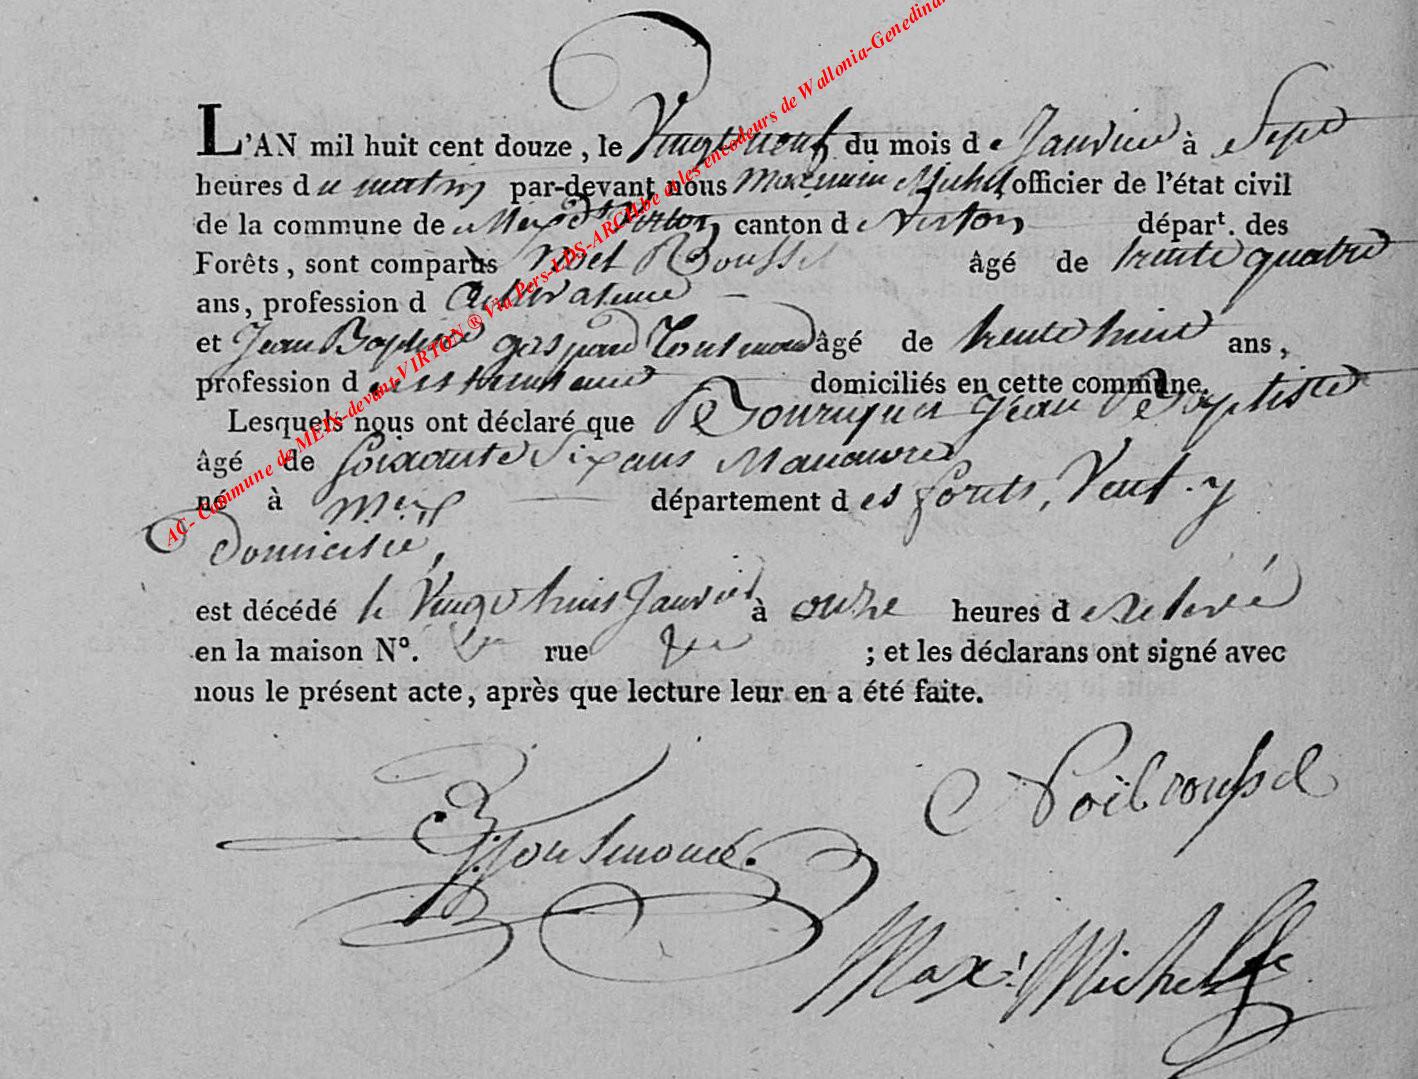 L'AN mil huit cent douze, le Vingt neuf du mois de Janvier à Sept
heures du matin par-devant nous Maximin Michel officier de l'état civil
de la commune de Meix dt Virton canton de Virton départ. des
Forêts, sont comparus Noel Roussel âgé de trente quatre
ans, profession d Cultivateur
et Jean Baptiste gaspard Toussmond âgé de trente huit ans,
profession d domiciliés en cette commune.
Lesquels nous ont déclaré que Jean Baptiste
âgé de soixante Six ans Manouvre
né à Meix département des forets, Veuf. y
Domicilié,
est décédé le Vingt huit Janvier à onze heures de relevé
en la maison N°. rue ; et les déclarans ont signé avec
nous le présent acte, après que lecture leur en a été faite.
Noël roussel
Max: Michel
AC- Commune de MEIX-devant-VIRTON ® Via Pers-LDS-ARCH.be et les encodeurs de Wallonia-Genedinar